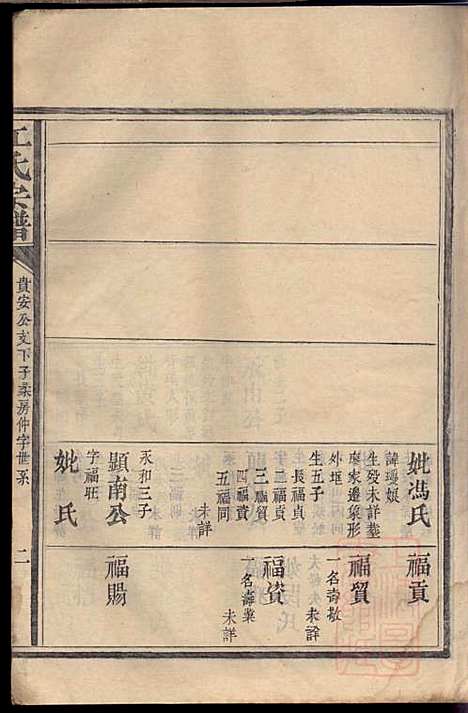 妣馮氏
諱瑪娘
生歿未詳塟
廖家邊象形
外堀
生五子
長福貞
二福貢
三福質
四福資
五福同
未詳
顯南公
永和三子
字福旺
妣 氏
福貢
福質
一名壽敖
未詳
福資
一名壽業
未詳
福賜
江氏宗譜
貴安公支下子榮房仲字世系
二